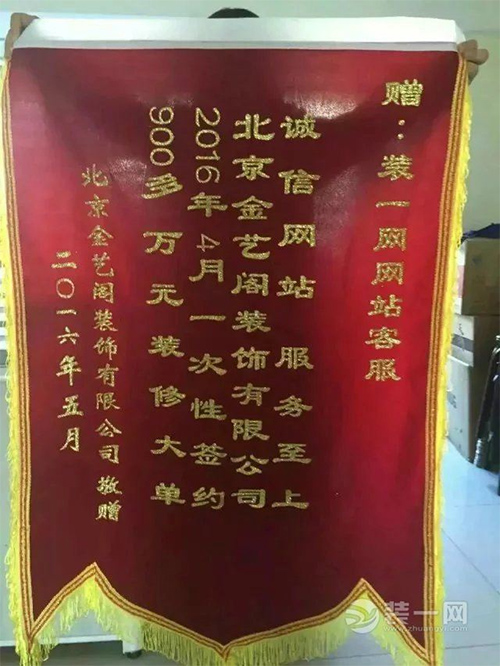 赠：装一网网站客服
诚信网站服务至上
北京金艺阁装饰有限公司
2016年4月一次性签约
900多万元装修大单
北京金艺阁装饰有限公司 敬赠
二〇一六年五月
装一网
www.zhuangyi.com